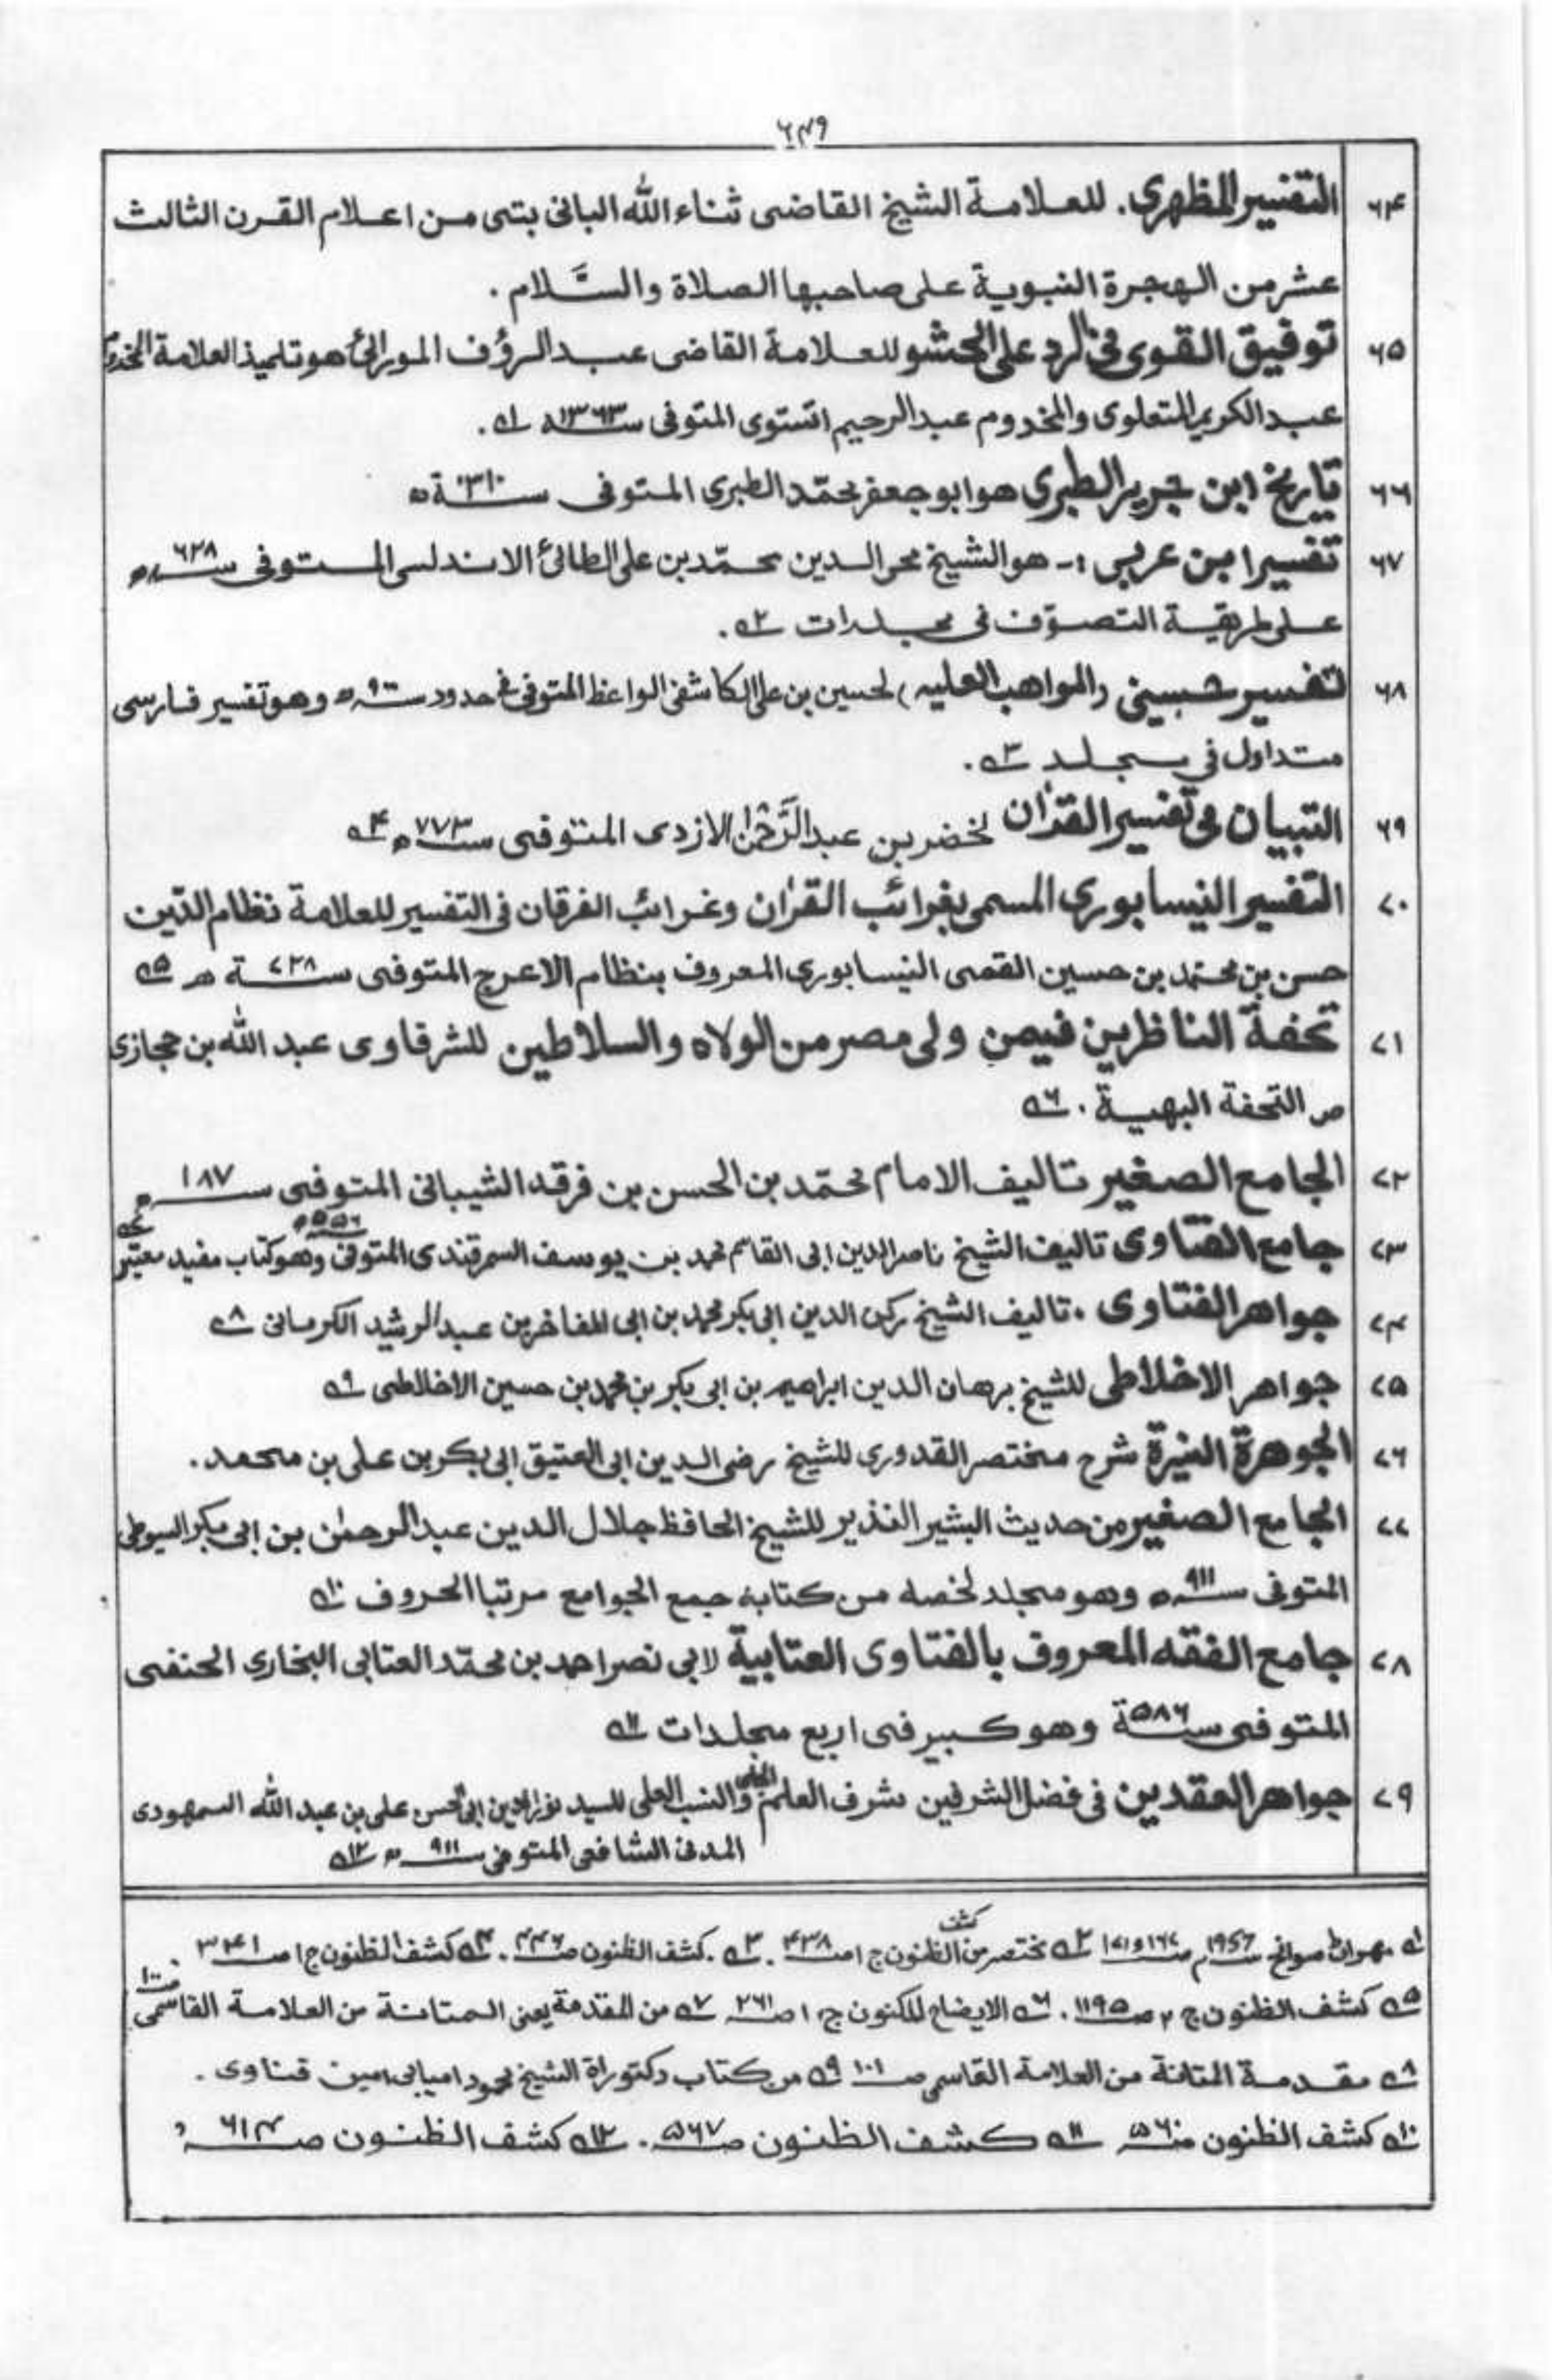 ٦٤٩
٦٤ التفسير المظهري. للعلامة الشيخ القاضى ثناء الله البانى بتى من اعلام القرن الثالث
عشر من الهجرة النبوية على صاحبها الصلاة والسَّلام .
٦٥ توفيق القوى فى الرد على المحشو للعلامة القاضى عبد الرؤف المورائى هو تلميذ العلامة المخدوم
عبد الكريم المتعلوى والمخدوم عبد الرحيم المتوفى سنة ١٣٦٣ه له .
٦٦ تاريخ ابن جرير الطبرى هو ابو جعفر محمّد الطبرى المتوفى سنة ٣١٠ه
٦٧ تفسير ابن عربى :- هو الشيخ محى الدين محمّد بن على الطائى الاندلسى المتوفى سنة ٦٢٨ه
على طريقة التصوّف فى مجلدات ٢ه .
٦٨ تفسير حسينى (المواهب العليه) لحسين بن على الكاشفى الواعظ المتوفى فى حدود سنة ٩٠٠ه وهو تفسير فارسى
متداول في مجلد ٣ه .
٦٩ التبيان فى تفسير القرْان لخضر بن عبد الرَّحْمٰن الازدى المتوفى سنة ٧٧٣ه ٤ه
٧٠ التفسير النيسابورى المسمى بغرائب القرٰان وغرائب الفرقان فى التفسير للعلامة نظام الدّين
حسن بن محمّد بن حسين القمى النيسابوري المعروف بنظام الاعرج المتوفى سنة ٧٢٨ه ٥ه
٧١ تحفة الناظرين فيمن ولى مصر من الولاه والسلاطين للشرقاوى عبد الله بن حجازى
ص التحفة البهية . ٦ه
٧٢ الجامع الصغير تاليف الامام محمّد بن الحسن بن فرقد الشيبانى المتوفى سنة ١٨٧ه
٧٣ جامع الفتاوى تاليف الشيخ ناصر الدين ابى القاسم محمد بن يوسف السمرقندى المتوفى ٥٥٦ه وهو كتاب مفيد معتبر ٧ه
٧٤ جواهر الفتاوى . تاليف الشيخ ركن الدين ابى بكر محمد بن ابى المفاخر بن عبد الرشيد الكرمانى ٨ه
٧٥ جواهر الاخلاطى للشيخ برهان الدين ابراهيم بن ابى بكر بن محمد بن حسين الاخلاطى ٩ه
٧٦ الجوهرة النيرة شرح مختصر القدورى للشيخ رضى الدين ابى العتيق ابى بكر بن على بن محمد .
٧٧ الجامع الصغير من حديث البشير النذير للشيخ الحافظ جلال الدين عبد الرحمٰن بن ابى بكر السيوطى
المتوفى سنة ٩١١ه وهو مجلد لخصه من كتابه جمع الجوامع مرتبا الحروف ١٠ه
٧٨ جامع الفقه المعروف بالفتاوى العتابية لابي نصر احمد بن محمّد العتابى البخاري الحنفى
المتوفى سنة ٥٨٦ وهو كبير فى اربع مجلدات ١١ه
٧٩ جواهر العقدين فى فضل الشرفين شرف العلم الجلى والنسب العلى للسيد نور الدين ابى الحسن على بن عبد الله السمهودى
المدنى الشافعى المتوفى سنة ٩١١ه ١٢ه
١ه مهران سوانح ١٩٥٦م ص ١٦٧و١٧١ ٢ه مختصر من كشف الظنون ج١ ص ٤٣٨ . ٣ه . كشف الظنون ص ٤٤٦ . ٤ه كشف الظنون ج١ ص ٣٤١ .
٥ه كشف الظنون ج ٢ ص ١١٩٥ . ٦ه الايضاح المكنون ج١ ص ٢٦١ ٧ه من المقدمة يعنى المتانة من العلامة القاسمى ص ١٠٠
٨ه مقدمة المتانة من العلامة القاسمى ص ١٠١ ٩ه من كتاب دكتوراة الشيخ امين قناوى .
١٠ه كشف الظنون ص ٥٦٠ ١١ه كشف الظنون ص ٥٦٧ . ١٢ه كشف الظنون ص ٦١٤